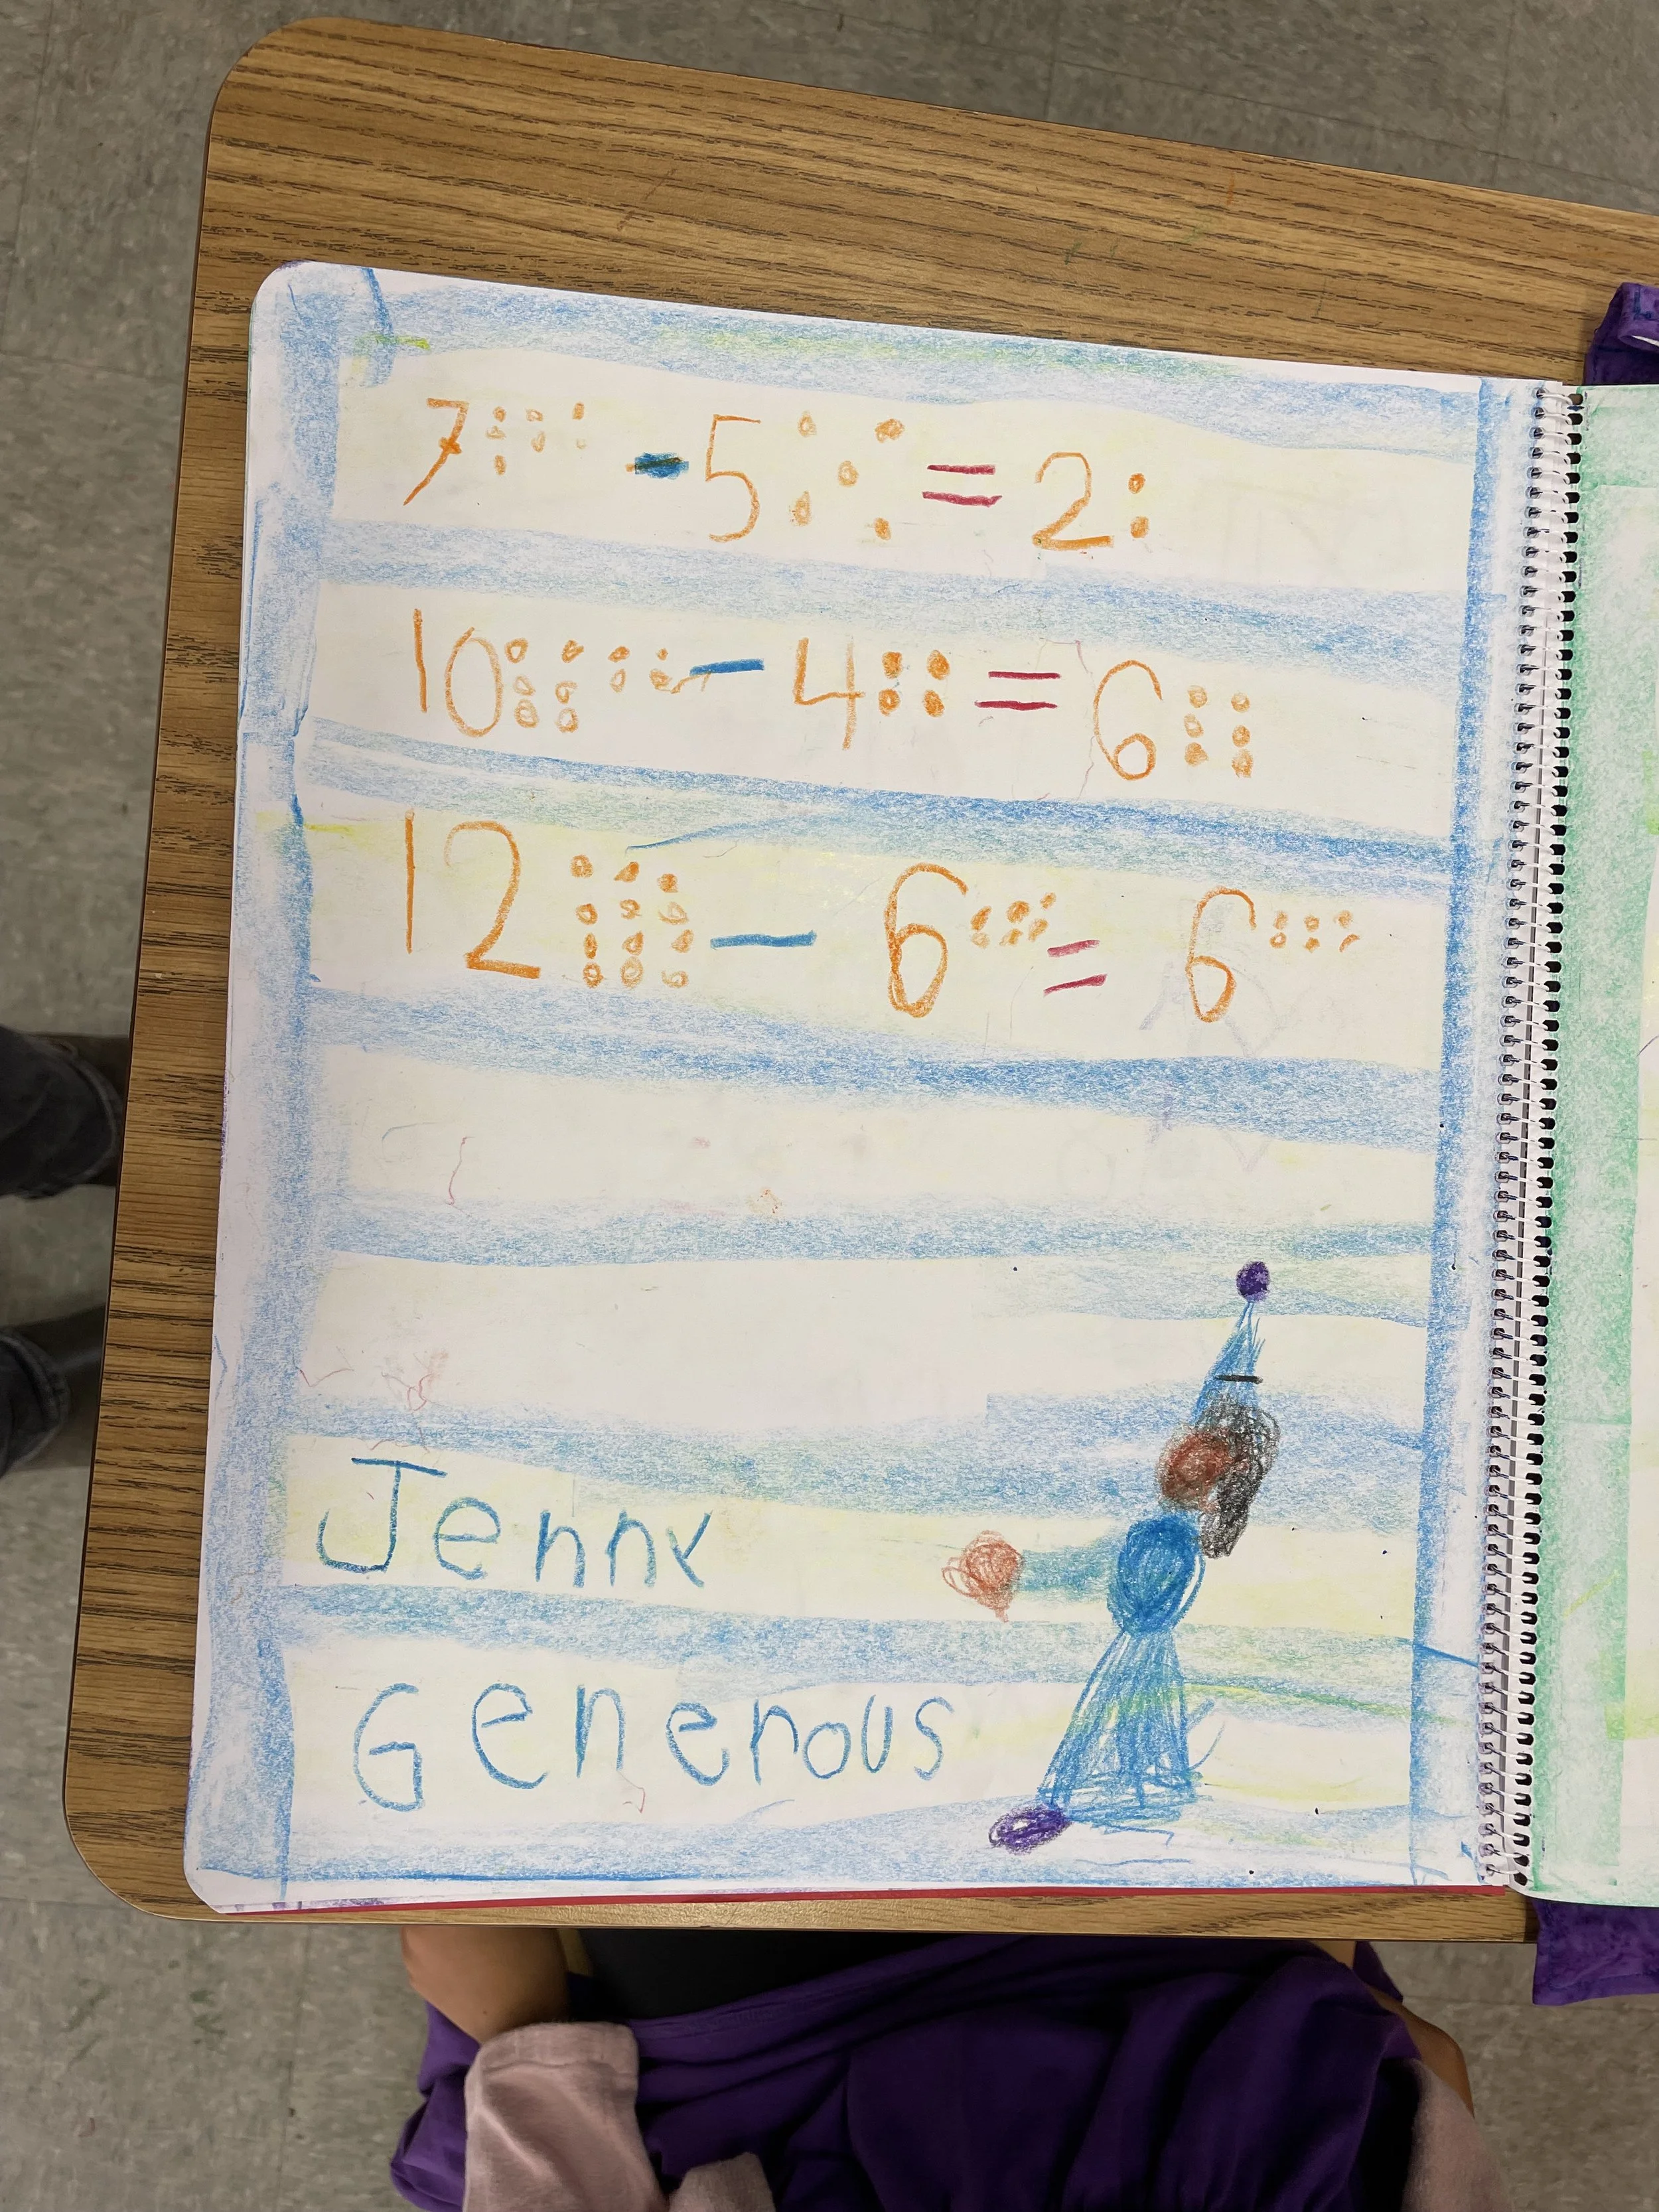 7 - 5 = 2
10 - 4 = 6
12 - 6 = 6
Jenny
Generous